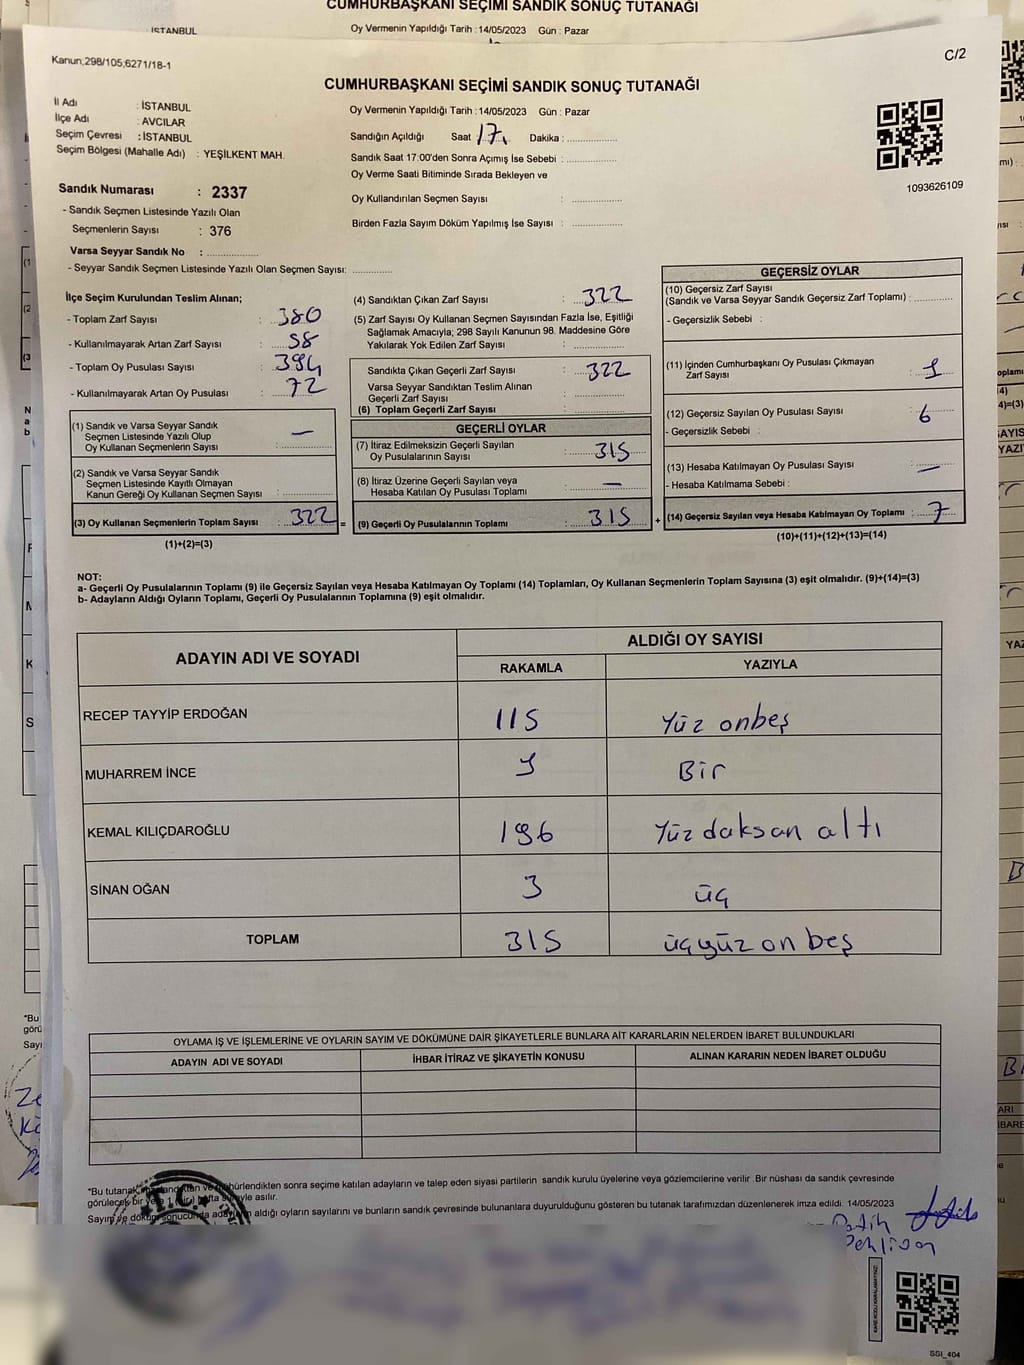 CUMHURBAŞKANI SEÇİMİ SANDIK SONUÇ TUTANAĞI
İSTANBUL
Oy Vermenin Yapıldığı Tarih : 14/05/2023 Gün : Pazar
Kanun;298/105;6271/18-1
C/2
CUMHURBAŞKANI SEÇİMİ SANDIK SONUÇ TUTANAĞI
İl Adı : İSTANBUL
İlçe Adı : AVCILAR
Seçim Çevresi : İSTANBUL
Seçim Bölgesi (Mahalle Adı) : YEŞİLKENT MAH.
Oy Vermenin Yapıldığı Tarih : 14/05/2023 Gün : Pazar
Sandığın Açıldığı Saat 17 Dakika : ..................
Sandık Saat 17:00'den Sonra Açımış İse Sebebi : ..................
Oy Verme Saati Bitiminde Sırada Bekleyen ve
Oy Kullandırılan Seçmen Sayısı : ..................
Birden Fazla Sayım Döküm Yapılmış İse Sayısı : ..................
1093626109
Sandık Numarası : 2337
- Sandık Seçmen Listesinde Yazılı Olan
Seçmenlerin Sayısı : 376
Varsa Seyyar Sandık No : ..................
- Seyyar Sandık Seçmen Listesinde Yazılı Olan Seçmen Sayısı: ..............
İlçe Seçim Kurulundan Teslim Alınan;
- Toplam Zarf Sayısı : 380
- Kullanılmayarak Artan Zarf Sayısı : 58
- Toplam Oy Pusulası Sayısı : 394
- Kullanılmayarak Artan Oy Pusulası : 72
(1) Sandık ve Varsa Seyyar Sandık
Seçmen Listesinde Yazılı Olup
Oy Kullanan Seçmenlerin Sayısı : —
(2) Sandık ve Varsa Seyyar Sandık
Seçmen Listesinde Kayıtlı Olmayan
Kanun Gereği Oy Kullanan Seçmen Sayısı : ..................
(3) Oy Kullanan Seçmenlerin Toplam Sayısı : 322 =
(1)+(2)=(3)
(4) Sandıktan Çıkan Zarf Sayısı : 322
(5) Zarf Sayısı Oy Kullanan Seçmen Sayısından Fazla İse, Eşitliği
Sağlamak Amacıyla; 298 Sayılı Kanunun 98. Maddesine Göre
Yakılarak Yok Edilen Zarf Sayısı : ..................
Sandıkta Çıkan Geçerli Zarf Sayısı : 322
Varsa Seyyar Sandıktan Teslim Alınan
Geçerli Zarf Sayısı : ..................
(6) Toplam Geçerli Zarf Sayısı : ..................
GEÇERLİ OYLAR
(7) İtiraz Edilmeksizin Geçerli Sayılan
Oy Pusulalarının Sayısı : 315
(8) İtiraz Üzerine Geçerli Sayılan veya
Hesaba Katılan Oy Pusulası Toplamı : —
(9) Geçerli Oy Pusulalarının Toplamı : 315 +
GEÇERSİZ OYLAR
(10) Geçersiz Zarf Sayısı
(Sandık ve Varsa Seyyar Sandık Geçersiz Zarf Toplamı) : ............
- Geçersizlik Sebebi :
(11) İçinden Cumhurbaşkanı Oy Pusulası Çıkmayan
Zarf Sayısı : 1
(12) Geçersiz Sayılan Oy Pusulası Sayısı : 6
- Geçersizlik Sebebi :
(13) Hesaba Katılmayan Oy Pusulası Sayısı : —
- Hesaba Katılmama Sebebi :
(14) Geçersiz Sayılan veya Hesaba Katılmayan Oy Toplamı : 7
(10)+(11)+(12)+(13)=(14)
NOT:
a- Geçerli Oy Pusulalarının Toplamı (9) ile Geçersiz Sayılan veya Hesaba Katılmayan Oy Toplamı (14) Toplamları, Oy Kullanan Seçmenlerin Toplam Sayısına (3) eşit olmalıdır. (9)+(14)=(3)
b- Adayların Aldığı Oyların Toplamı, Geçerli Oy Pusulalarının Toplamına (9) eşit olmalıdır.
ADAYIN ADI VE SOYADI ALDIĞI OY SAYISI
RAKAMLA YAZIYLA
RECEP TAYYİP ERDOĞAN 115 Yüz onbeş
MUHARREM İNCE 1 Bir
KEMAL KILIÇDAROĞLU 196 Yüz daksan altı
SİNAN OĞAN 3 üç
TOPLAM 315 üçyüz on beş
OYLAMA İŞ VE İŞLEMLERİNE VE OYLARIN SAYIM VE DÖKÜMÜNE DAİR ŞİKAYETLERLE BUNLARA AİT KARARLARIN NELERDEN İBARET BULUNDUKLARI
ADAYIN ADI VE SOYADI İHBAR İTİRAZ VE ŞİKAYETİN KONUSU ALINAN KARARIN NEDEN İBARET OLDUĞU
*Bu tutanak, seçime katılan adayların ve talep eden siyasi partilerin sandık kurulu üyelerine veya gözlemcilerine verilir. Bir nüshası da sandık çevresinde
görülecek bir yere 1 (bir) hafta süreyle asılır.
Sayım ve döküm sonucunda adayların aldığı oyların sayılarını ve bunların sandık çevresinde bulunanlara duyurulduğunu gösteren bu tutanak tarafımızdan düzenlenerek imza edildi. 14/05/2023
T.C.
Fatih
Pehlivan
SSI_404